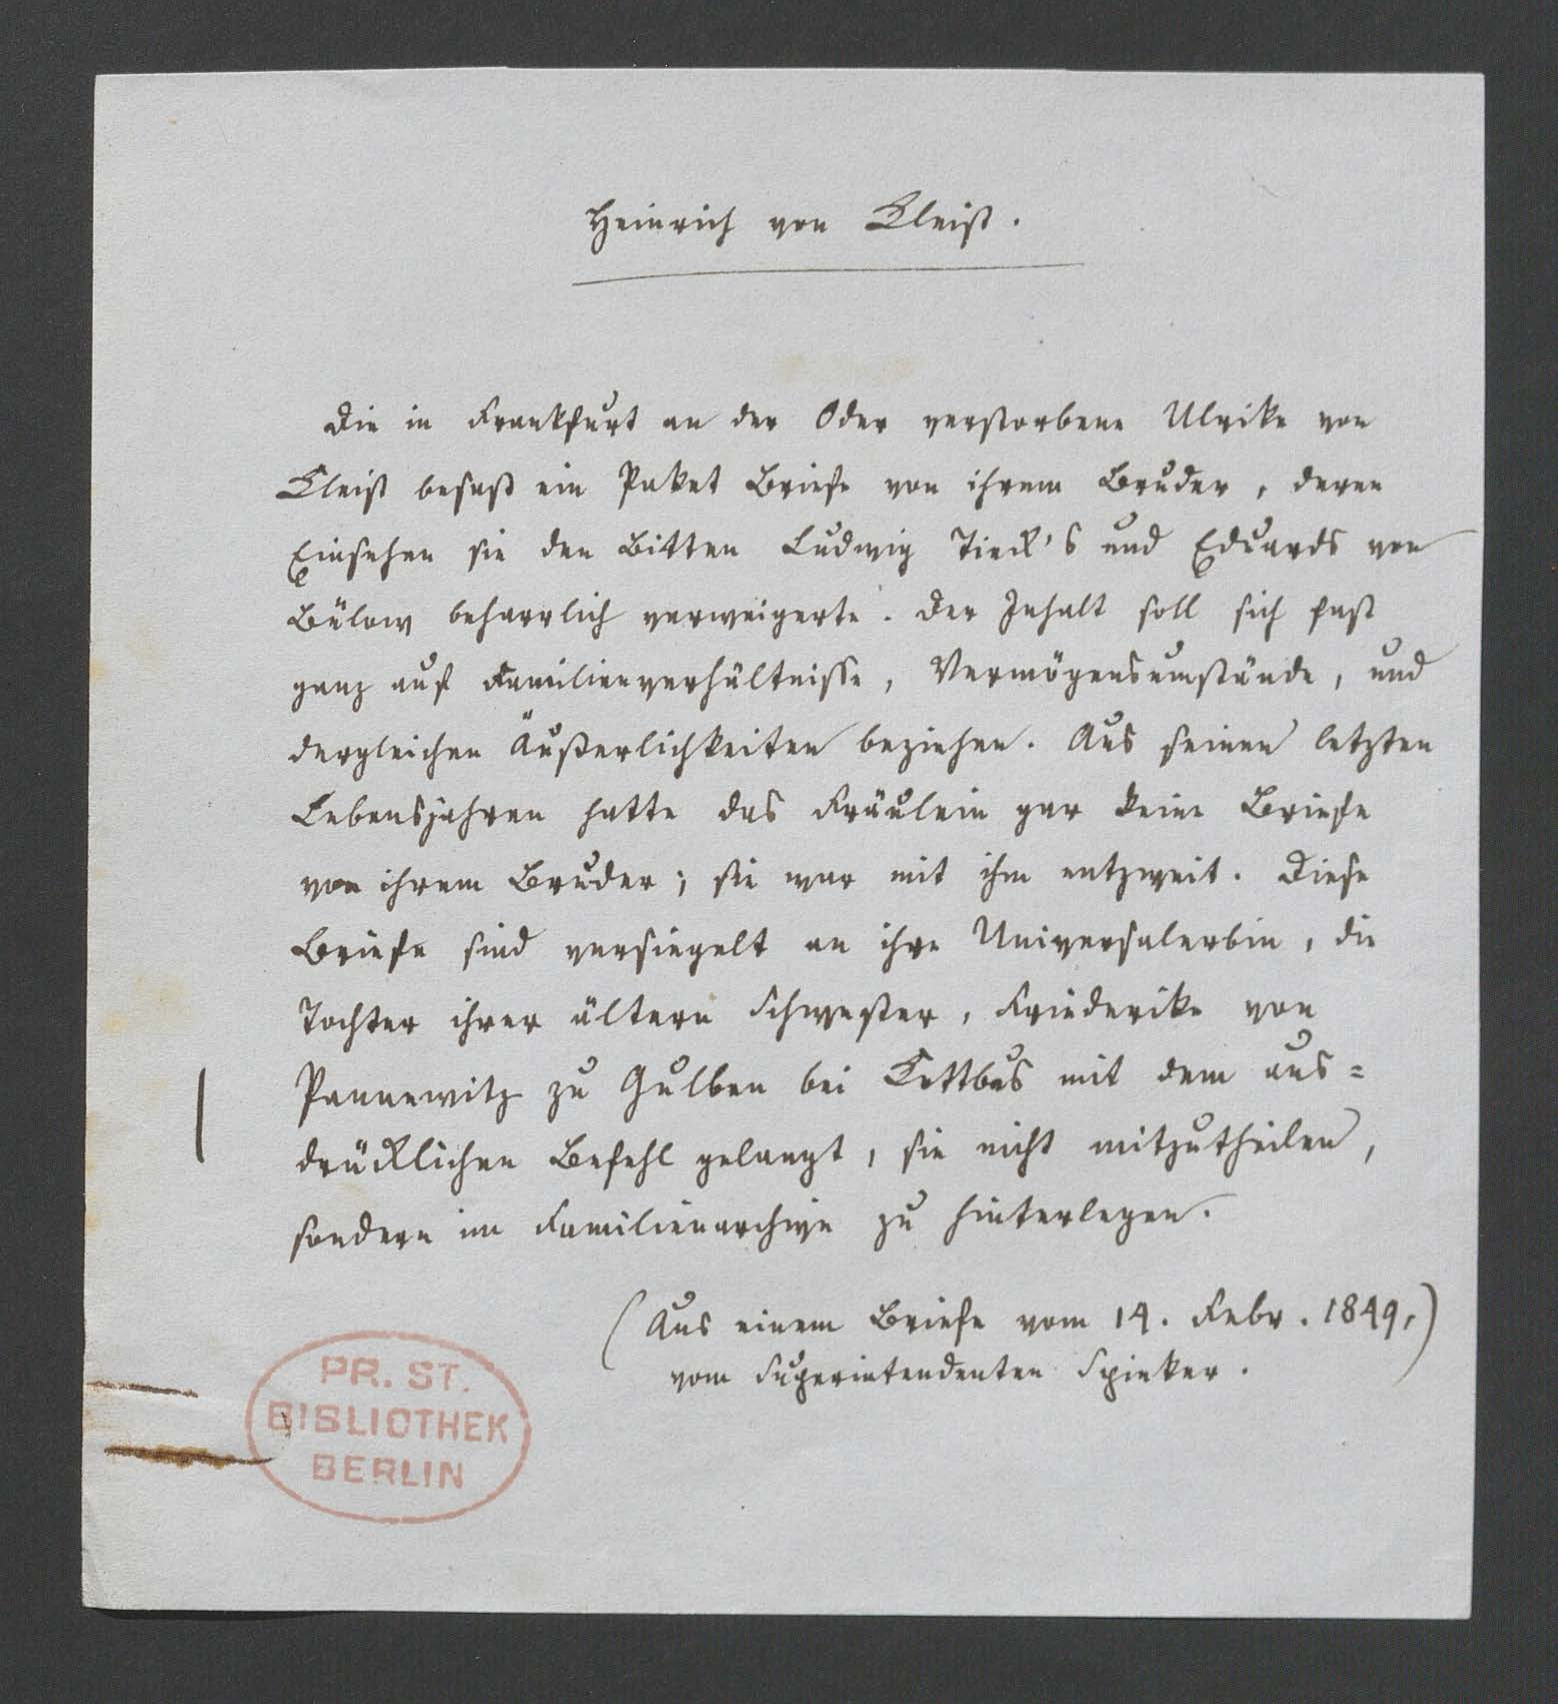 Heinrich von Kleist.
Die in Frankfurt an der Oder verstorbene Ulrike von
Kleist besaß ein Paket Briefe von ihrem Bruder, deren
Einsehen sie den Bitten Ludwig Tieck's und Eduards von
Bülow beharrlich verweigerte. Der Inhalt soll sich fast
ganz auf Familienverhältnisse, Vermögensumstände, und
dergleichen Äußerlichkeiten beziehen. Aus seinen letzten
Lebensjahren hatte das Fräulein gar keine Briefe
von ihrem Bruder; sie war mit ihm entzweit. Diese
Briefe sind versiegelt an ihre Universalerbin, die
Tochter ihrer ältern Schwester, Friederike von
Pannewitz zu Gulben bei Kottbus mit dem aus=
drücklichen Befehl gelangt, sie nicht mitzutheilen,
sondern im Familienarchive zu hinterlegen.
(Aus einem Briefe vom 14. Febr. 1849,)
vom Superintendenten Spieker.
PR. ST.
BIBLIOTHEK
BERLIN